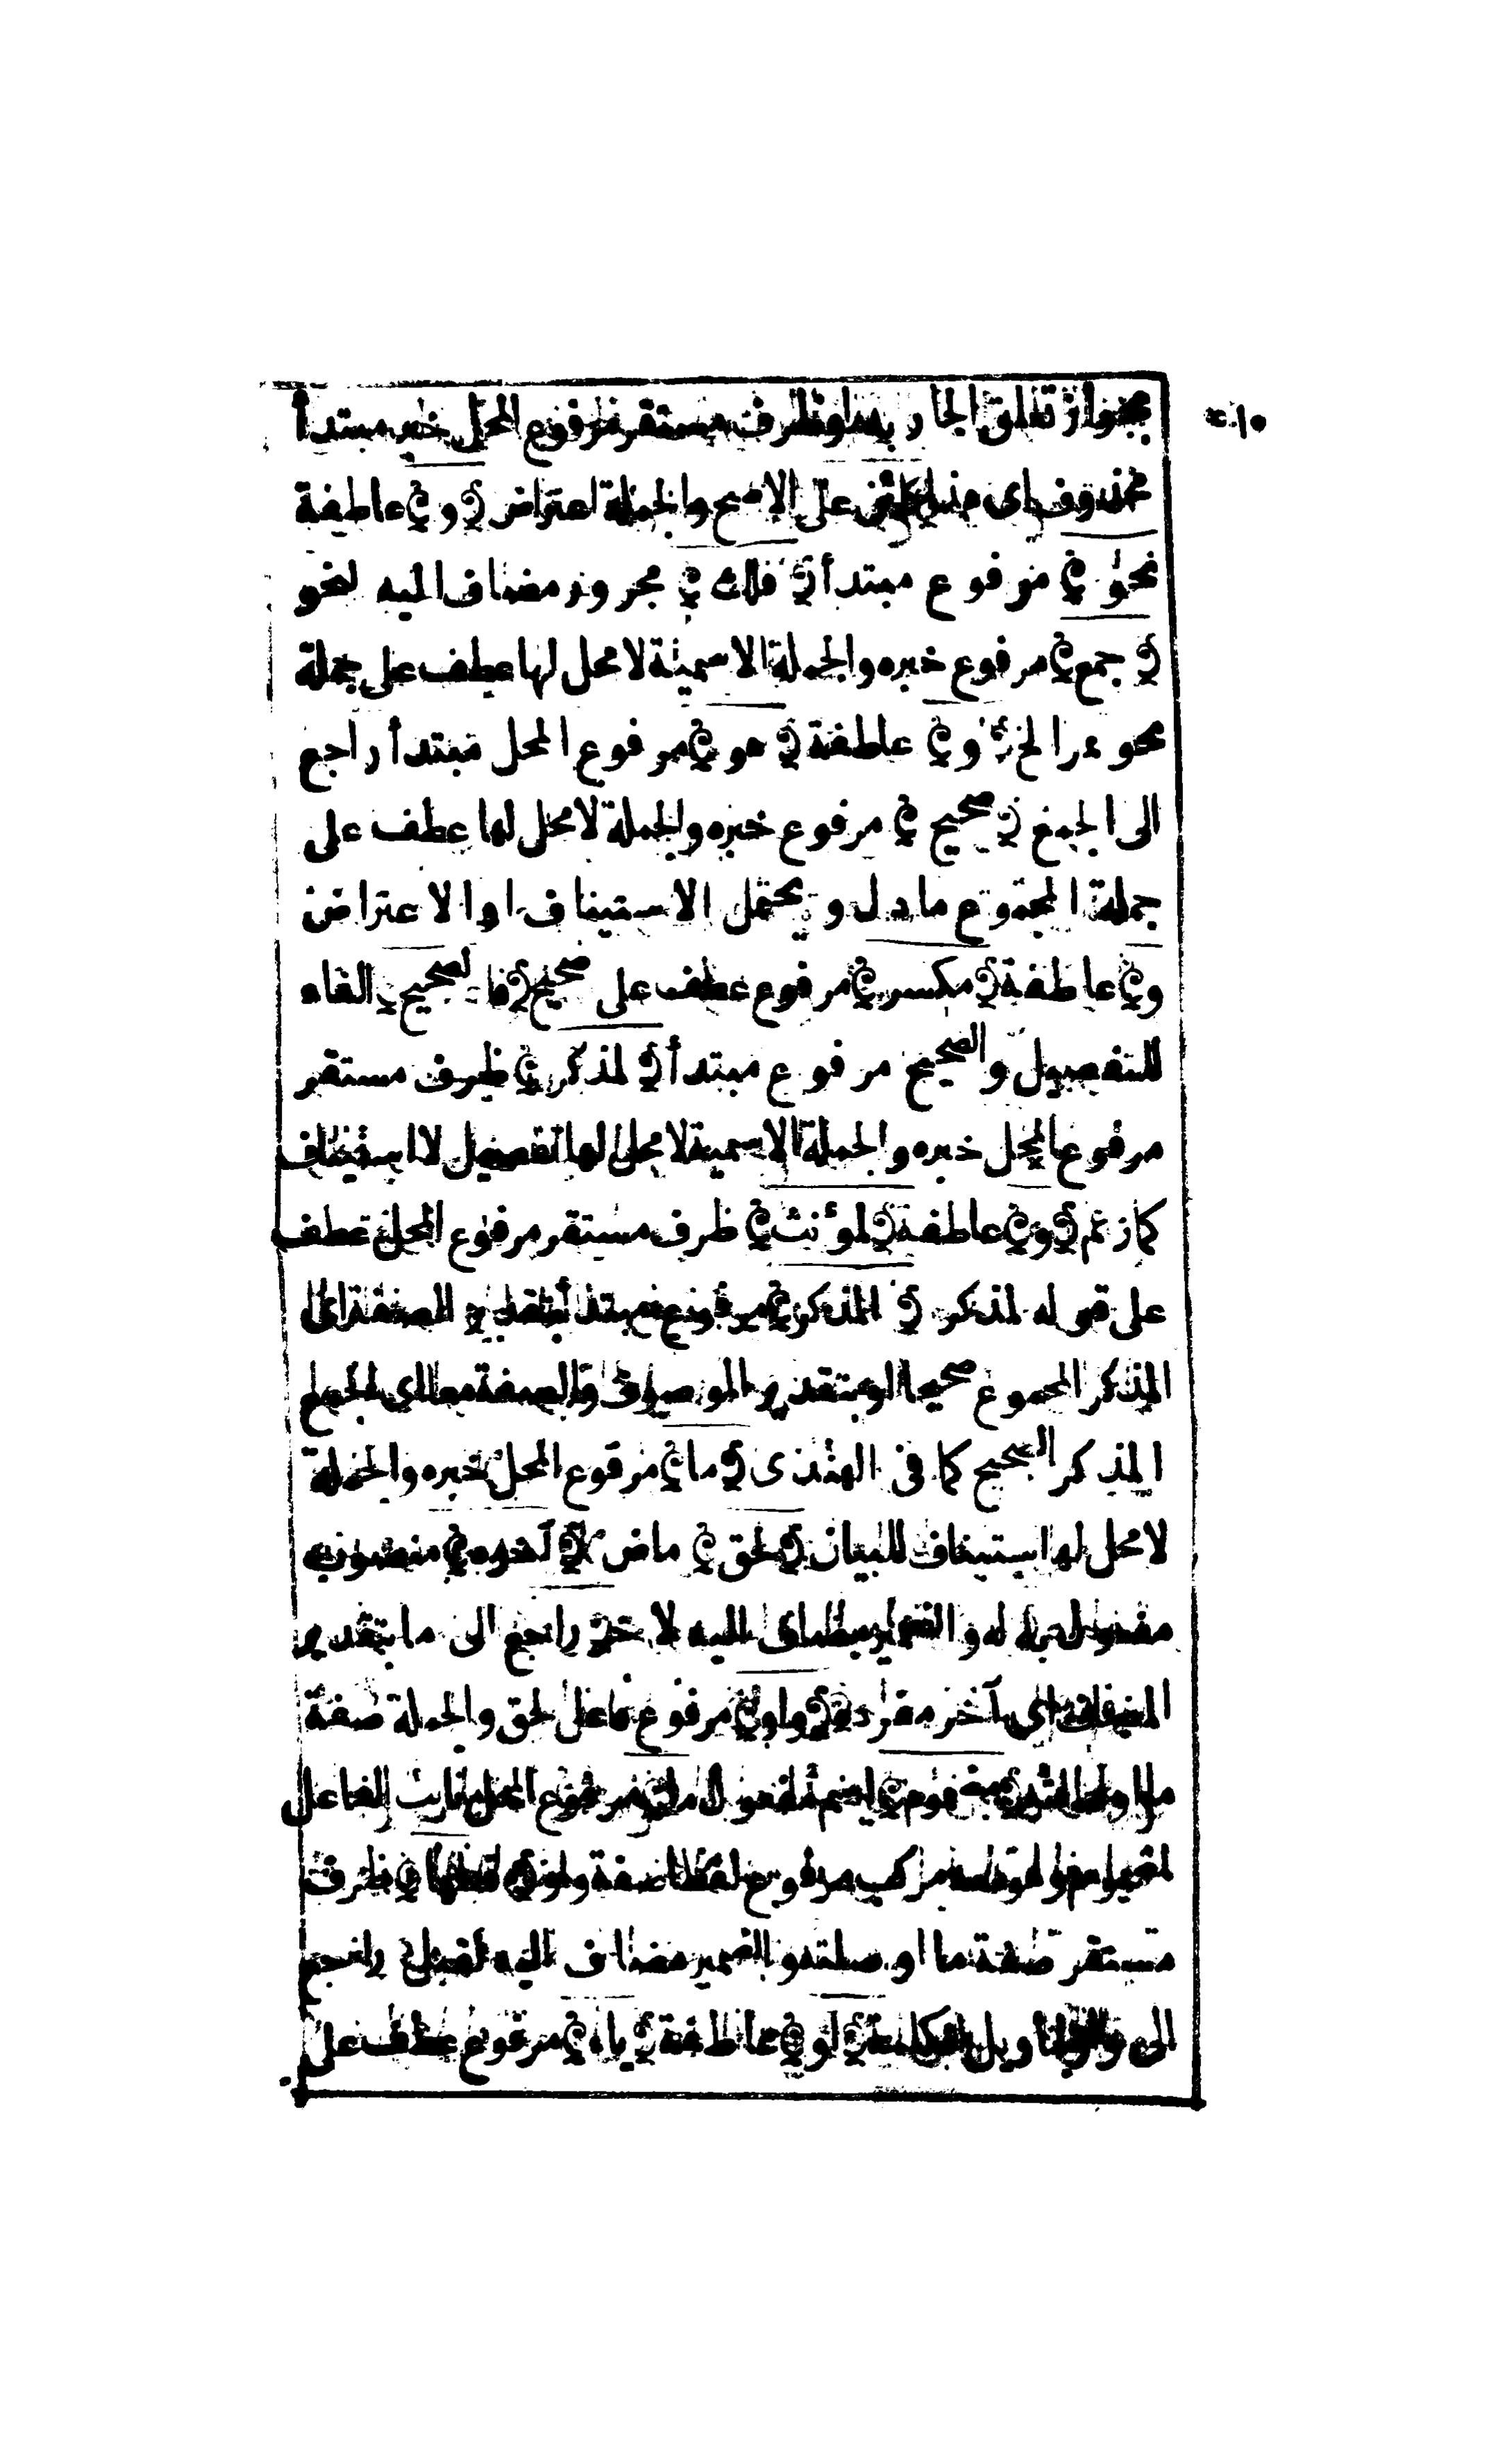 بجواز تعلق الجار بهما وظرف مستقر مرفوع المحل خبر مبتدأ
محذوف اى هذا على الاصح والجملة اعتراض ﴿و﴾ عاطفة
نحو﴾ مرفوع مبتدأ ﴿فلك﴾ مجرور مضاف اليه لنحو
﴿جمع﴾ مرفوع خبره والجملة الاسمية لا محل لها عطف على جملة
نحو تمر الخ ﴿و﴾ عاطفة ﴿هو﴾ مرفوع المحل مبتدأ راجع
الى الجمع ﴿صحيح﴾ مرفوع خبره والجملة لا محل لها عطف على
جملة المجموع ما دل ويحتمل الاستيناف او الاعتراض
﴿و﴾ عاطفة ﴿مكسر﴾ مرفوع عطف على صحيح ﴿فالصحيح﴾ الفاء
للتفصيل والصحيح مرفوع مبتدأ ﴿لمذكر﴾ ظرف مستقر
مرفوع المحل خبره والجملة الاسمية لا محل لها تفصيل لا استيناف
كما زعم ﴿و﴾ عاطفة ﴿لمؤنث﴾ ظرف مستقر مرفوع المحل عطف
على قوله لمذكر ﴿المذكر﴾ مرفوع مبتدأ بتقدير الصفة اى
المذكر المجموع صحيحا او بتقدير الموصوف والصفة معا اى الجمع
المذكر الصحيح كما فى الهندى ﴿ما﴾ مرفوع المحل خبره والجملة
لا محل لها استيناف للبيان ﴿لحق﴾ ماض ﴿آخره﴾ منصوب
مفعول به له والضمير مضاف اليه لآخر راجع الى ما بتقدير
المضاف اى آخر مفرده ﴿واو﴾ مرفوع فاعل لحق والجملة صفة
ما او صلته ﴿مضموم﴾ اسم مفعول ﴿ما﴾ مرفوع المحل نائب الفاعل
لمضموم مركب مرفوع لفظا صفة واو ﴿قبلها﴾ ظرف
مستقر صفة ما او صلته والضمير مضاف اليه لقبل راجع
الى الواو بتأويل الكلمة ﴿او﴾ عاطفة ﴿ياء﴾ مرفوع عطف على